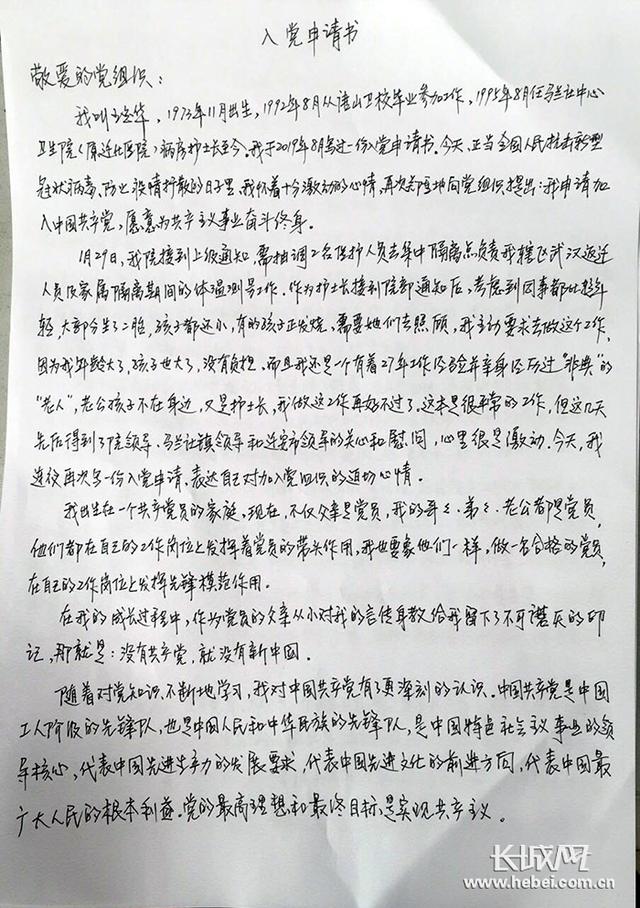 入党申请书
敬爱的党组织：
我叫王宏华，1973年11月出生，1992年8月从唐山卫校毕业参加工作，1995年8月任马兰庄中心
卫生院（原迁北医院）病房护士长至今。我于2019年8月写过一份入党申请书。今天，正当全国人民抗击新型
冠状病毒、防止疫情扩散的日子里，我怀着十分激动的心情，再次郑重地向党组织提出：我申请加
入中国共产党，愿意为共产主义事业奋斗终身。
1月29日，我院接到上级通知，需抽调2名医护人员去集中隔离点负责我辖区武汉返迁
人员及家属隔离期间的体温测量工作。作为护士长接到院部通知后，考虑到同事都比较年
轻，大部分生了二胎，孩子都还小，有的孩子正发烧，需要她们去照顾，我主动要求去做这个工作，
因为我年龄大了，孩子也大了，没有负担。而且我还是一个有着27年工作经验并亲身经历过“非典”的
“老人”，老公孩子不在身边，又是护士长，我做这工作再好不过了。这本是很平常的工作，但这几天
先后得到了院领导、马兰庄镇领导和迁安市领导的关心和慰问，心里很是激动。今天，我
再次写一份入党申请，表达自己对加入党组织的迫切心情。
我出生在一个共产党员的家庭，现在，不仅父亲是党员，我的哥哥、弟弟、老公都是党员，
他们都在自己的工作岗位上发挥着党员的带头作用，我也要象他们一样，做一名合格的党员，
在自己的工作岗位上发挥先锋模范作用。
在我的成长过程中，作为党员的父亲从小对我的言传身教给我留下了不可磨灭的印
记，那就是：没有共产党，就没有新中国。
随着对党知识不断地学习，我对中国共产党有了更深刻的认识。中国共产党是中国
工人阶级的先锋队，也是中国人民和中华民族的先锋队，是中国特色社会主义事业的领
导核心，代表中国先进生产力的发展要求，代表中国先进文化的前进方向，代表中国最
广大人民的根本利益。党的最高理想和最终目标是实现共产主义。
长城网
www.hebei.com.cn